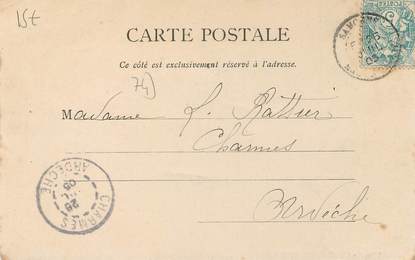 15t
CARTE POSTALE
Ce côté est exclusivement réservé à l'adresse.
74)
Madame L. Rattier
Charmes
Ardèche
CHARMES
ARDECHE
26
05
SAMOENS